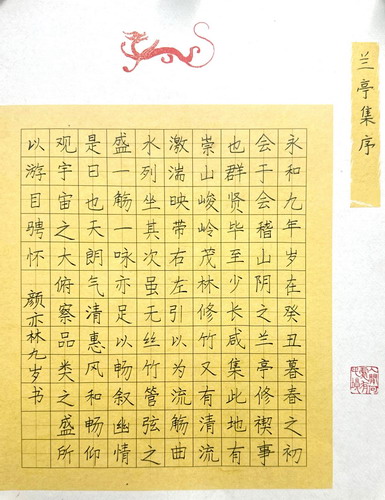 兰亭集序
永和九年岁在癸丑暮春之初
会于会稽山阴之兰亭修禊事
也群贤毕至少长咸集此地有
崇山峻岭茂林修竹又有清流
激湍映带右左引以为流觞曲
水列坐其次虽无丝竹管弦之
盛一觞一咏亦足以畅叙幽情
是日也天朗气清惠风和畅仰
观宇宙之大俯察品类之盛所
以游目聘怀 颜亦林九岁书